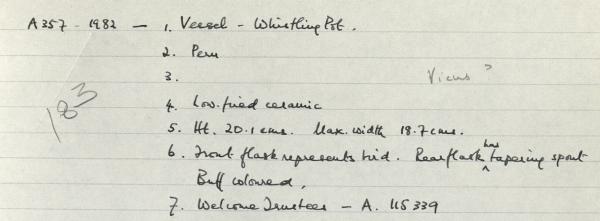 A 357 - 1982 — 1. Vessel - Whistling Pot.
2. Peru
3.
Vicus ?
183
4. Low-fired ceramic
5. Ht. 20.1 cms. Max. width 18.7 cms.
6. Front flask represents bird. Rear flask has tapering spout
Buff coloured.
7. Welcome Trustees - A. 115339